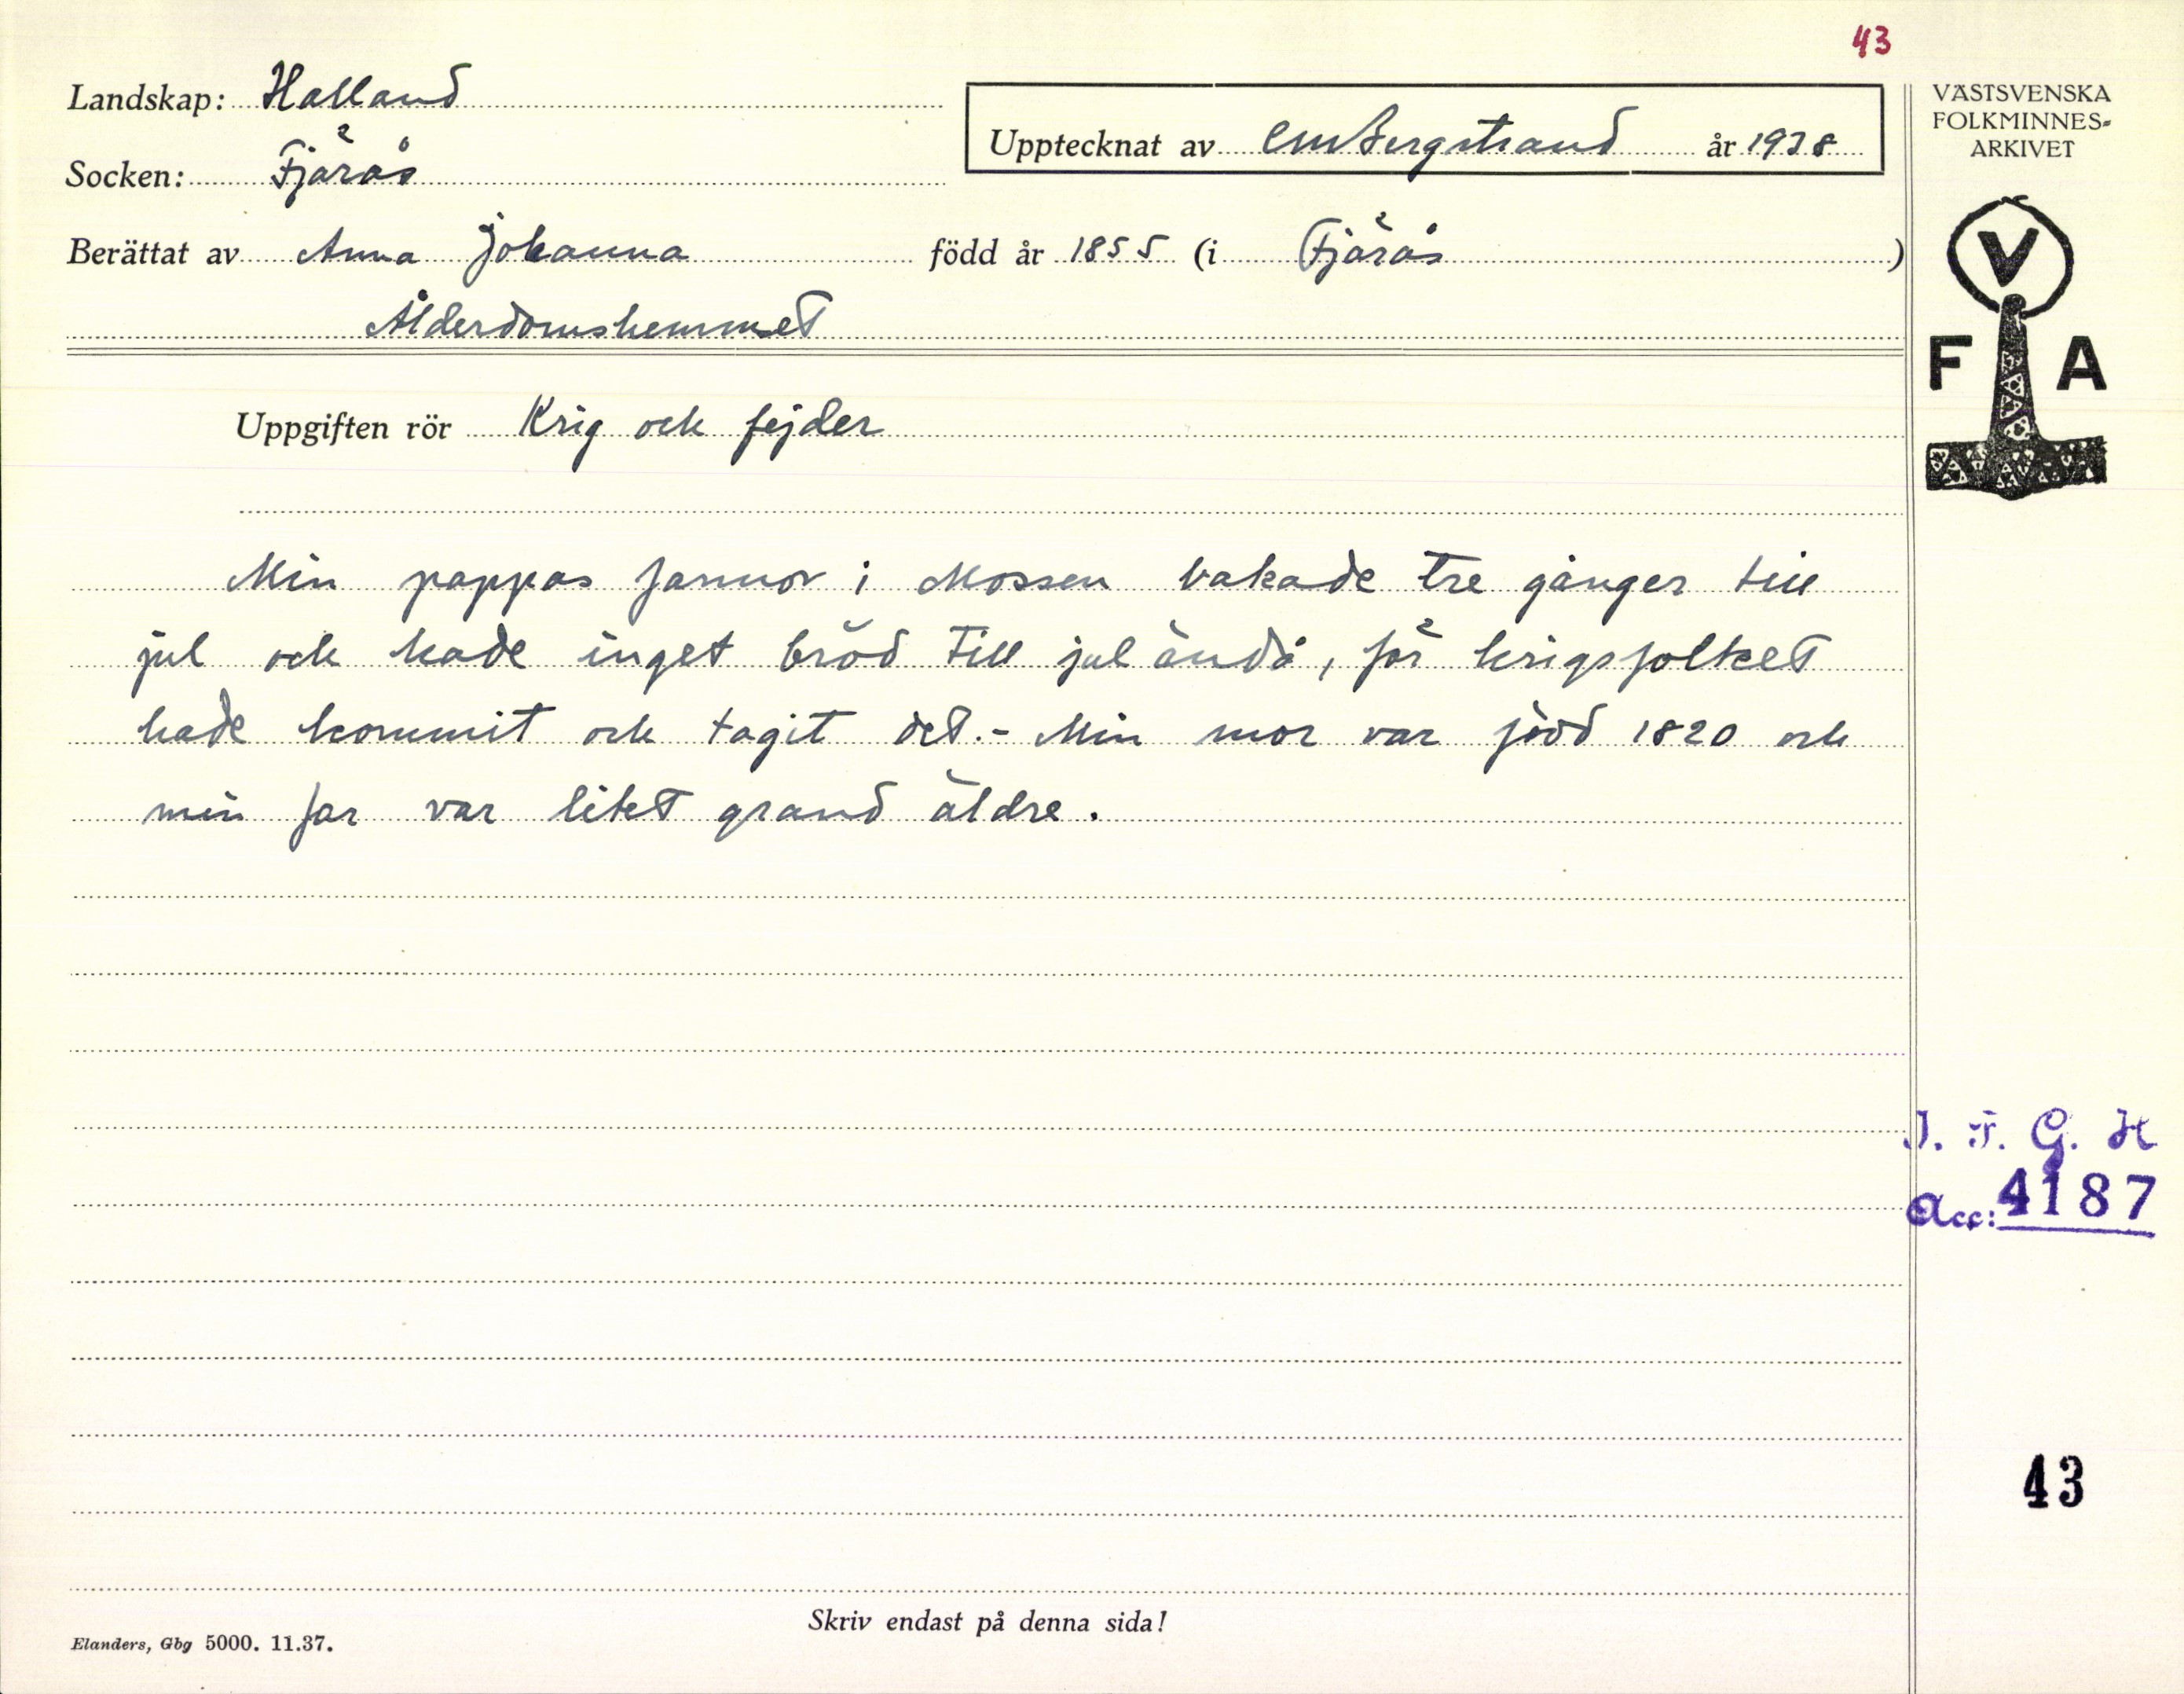 43
Landskap: Halland
Socken: Fjärås
Upptecknat av CM Bergstrand år 1938
VÄSTSVENSKA
FOLKMINNES-
ARKIVET
Berättat av Anna Johanna född år 1855 (i Fjärås)
Ålderdomshemmet
V
F A
Uppgiften rör Krig och fejder
Min pappas farmor i Mossen bakade tre gånger till
jul och hade inget bröd till jul ändå, för krigsfolket
hade kommit och tagit det. - Min mor var född 1820 och
min far var litet grand äldre.
I. F. G. H
Acc: 4187
43
Skriv endast på denna sida!
Elanders, Gbg 5000. 11.37.